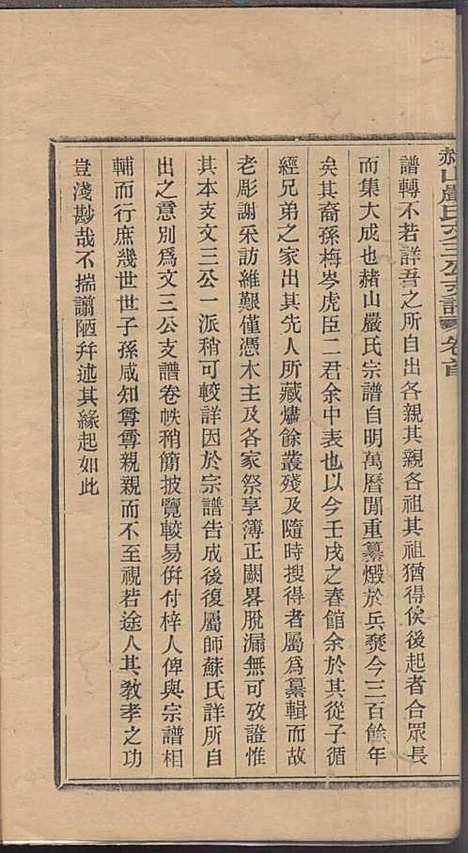 赭山嚴氏文三公支譜 卷首
譜轉不若詳吾之所自出各親其親各祖其祖猶得俟後起者合眾長
而集大成也赭山嚴氏宗譜自明萬曆閒重纂燬於兵燹今三百餘年
矣其裔孫梅岑虎臣二君余中表也以今壬戌之春館余於其從子循
經兄弟之家出其先人所藏燼餘叢殘及隨時搜得者屬爲纂輯而故
老彫謝采訪維艱僅憑木主及各家祭享簿正闕畧脫漏無可攷證惟
其本支文三公一派稍可較詳因於宗譜告成後復屬師蘇氏詳所自
出之意別爲文三公支譜卷帙稍簡披覽較易倂付梓人俾與宗譜相
輔而行庶幾世世子孫咸知尊尊親親而不至視若途人其敎孝之功
豈淺尠哉不揣譾陋幷述其緣起如此